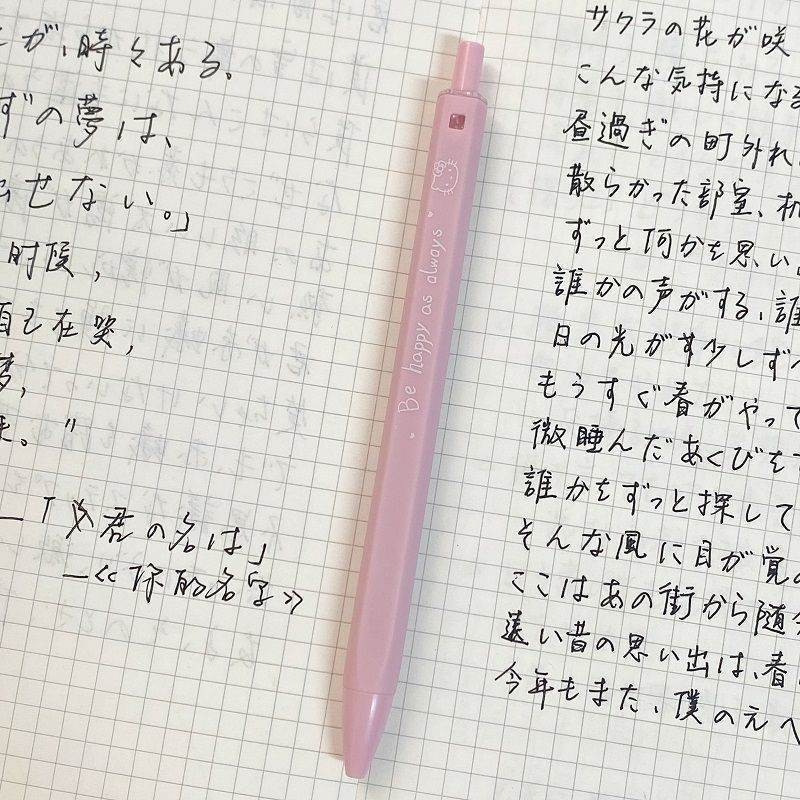 が、時々ある。
ずの夢は、
出せない。」
时候，
自己在哭，
梦，
来。"
—「君の名は」
—《你的名字》
Be happy as always
サクラの花が咲
こんな気持になる
昼過ぎの町外れ
散らかった部室、机
ずっと何かを思い
誰かの声がする、誰
日の光が少しずつ
もうすぐ春がやって
微睡んだあくびを
誰かをずっと探して
そんな風に目が覚め
ここはあの街から随分
遠い昔の思い出は、春
今年もまた、僕の元へ